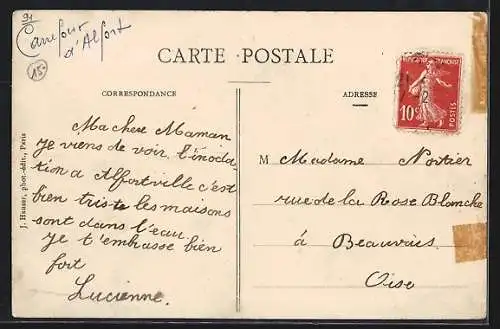 91
Carrefour
d'Alfort
15-
CARTE POSTALE
CORRESPONDANCE
ADRESSE
RÉPUBLIQUE FRANÇAISE
10c
POSTES
J. Hauser, phot.-édit., Paris
Ma chere Maman
Je viens de voir, l'inoda
tion a Alfortville c'est
bien triste les maisons
sont dans l'eau
Je t'embrasse bien
fort
Lucienne.
M Madame Portier
rue de la Rose Blanche
á Beauvais
Oise